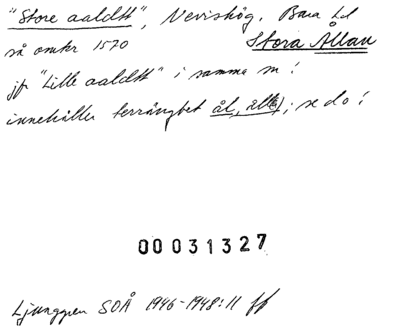 "Store aaldtt", Nevishög, Bara hd
så omkr 1570 Stora Ållan
jfr "Lille aaldtt" i samma sn!
innehåller terrängbet ål, ål(e); se do!
00031327
Ljunggren SOÅ 1946-1948:11 ff